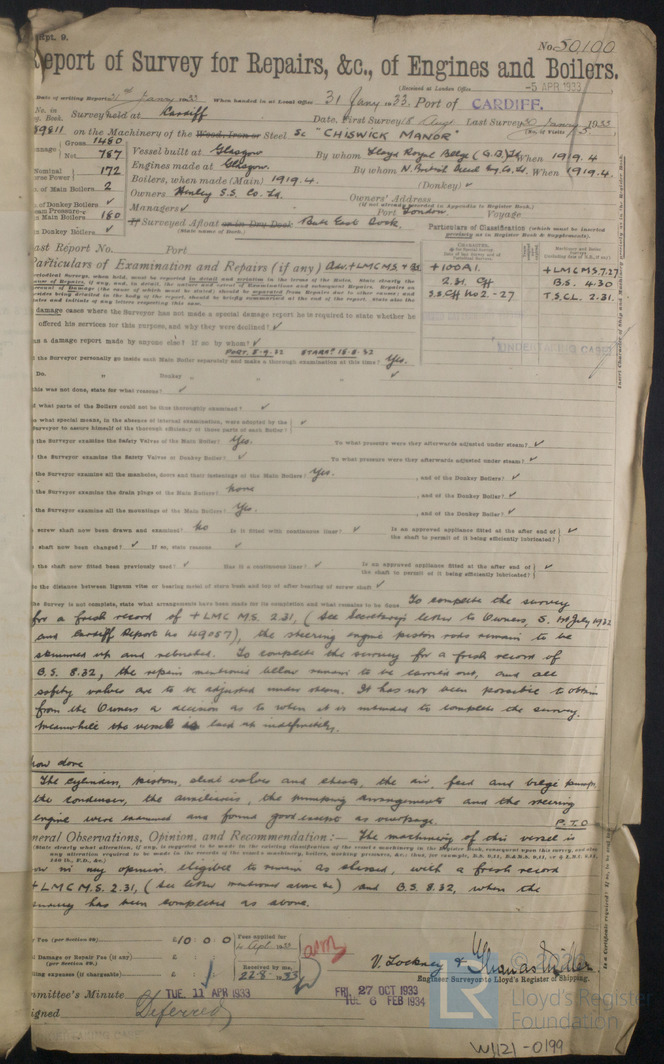 Rpt. 9.
No. 50,100
Report of Survey for Repairs, &c., of Engines and Boilers.
(Received at London Office -5 APR 1933
Date of writing Report 31st Jany 1933 When handed in at Local Office 31 Jany 1933. Port of CARDIFF.
No. in Reg. Book. Survey held at Cardiff Date, First Survey 18 Aug. Last Survey 30 January 1933
89811 on the Machinery of the Wood, Iron or Steel Sc "CHISWICK MANOR" (No. of Visits 15)
Tonnage Gross 1480
Net 787
Vessel built at Glasgow By whom Lloyd Royal Belge (G.B.) Ltd When 1919.4
Engines made at Glasgow. By whom N. British Diesel Eng. Co. Ltd. When 1919.4.
Nominal Horse Power 172
Boilers, when made (Main) 1919.4. (Donkey) ✓
No. of Main Boilers 2
Owners Henley S.S. Co. Ld. Owners' Address
(If not already recorded in Appendix to Register Book.)
No. of Donkey Boilers ✓
Managers ✓ Port London Voyage
Steam Pressure in Main Boilers 180
If Surveyed Afloat or in Dry Dock Bute East Dock.
(State name of Dock.)
in Donkey Boilers ✓
Particulars of Classification (which must be inserted precisely as in Register Book & Supplements).
Last Report No. Port
Particulars of Examination and Repairs (if any) Adv. + LMC MS. & BS
+100A1. +LMC MS. 7.27
2.31 Cff B.S. 4.30
S.S. Cff No 2 - 27 T.S.CL. 2.31.
In damage cases where the Surveyor has not made a special damage report he is required to state whether he offered his services for this purpose, and why they were declined? ✓
Was a damage report made by anyone else? If so by whom? ✓
PORT. 8-9.32 STARBd 18-8-32
Did the Surveyor personally go inside each Main Boiler separately and make a thorough examination at this time? Yes.
Do. " Donkey " " ✓
If this was not done, state for what reasons? ✓
And what parts of the Boilers could not be thus thoroughly examined? ✓
And what special means, in the absence of internal examination, were adopted by the Surveyor to assure himself of the thorough efficiency of those parts of each Boiler? ✓
Did the Surveyor examine the Safety Valves of the Main Boiler? Yes. To what pressure were they afterwards adjusted under steam? ✓
Did the Surveyor examine the Safety Valves of Donkey Boiler? ✓ To what pressure were they afterwards adjusted under steam? ✓
Did the Surveyor examine all the manholes, doors and their fastenings of the Main Boilers? Yes. , and of the Donkey Boilers? ✓
Did the Surveyor examine the drain plugs of the Main Boilers? None , and of the Donkey Boiler? ✓
Did the Surveyor examine all the mountings of the Main Boilers? Yes. , and of the Donkey Boiler? ✓
Has screw shaft now been drawn and examined? No Is it fitted with continuous liner? ✓ Is an approved appliance fitted at the after end of the shaft to permit of it being efficiently lubricated? ✓
Has shaft now been changed? ✓ If so, state reasons ✓
Has the shaft now fitted been previously used? ✓ Has it a continuous liner? ✓ Is an approved appliance fitted at the after end of the shaft to permit of it being efficiently lubricated? ✓
State the distance between lignum vitæ or bearing metal of stern bush and top of after bearing of screw shaft ✓
If the Survey is not complete, state what arrangements have been made for its completion and what remains to be done. To complete the survey
for a fresh record of + LMC MS. 2.31, (see Secretary's letter to Owners, S. 1st July 1932
and Cardiff Report No 49057), the steering engine piston rods remain to be
skimmed up and rebushed. To complete the survey for a fresh record of
B.S. 8.32, the repairs mentioned below remain to be carried out, and all
safety valves are to be adjusted under steam. It has not been possible to obtain
from the Owners a decision as to when it is intended to complete the survey.
Meanwhile the vessel is laid up indefinitely.
Now done
The cylinders, pistons, slide valves and chests, the air, feed and bilge pumps
the condenser, the auxiliaries, the pumping arrangements and the steering
engine were examined and found good except as overpage. P.T.O
General Observations, Opinion, and Recommendation:— The machinery of this vessel is
now in my opinion, eligible to remain as classed, with a fresh record
+ LMC MS. 2.31, (see letter mentioned above) and B.S. 8.32, when the
survey has been completed as above.
Fee (per Section 29) £10 : 0 : 0 Fees applied for 4 Apl 1933
Damage or Repair Fee (if any) £
(per Section 29).
Travelling expenses (if chargeable) £ Received by me, 22-8-1933
V. Lockney & Thomas Miller.
Engineer Surveyor to Lloyd's Register of Shipping.
Committee's Minute TUE. 11 APR 1933 FRI. 27 OCT 1933
TUE. 6 FEB 1934
Assigned Deferred
© 2021
LR
Lloyd's Register
Foundation
W1121-0199